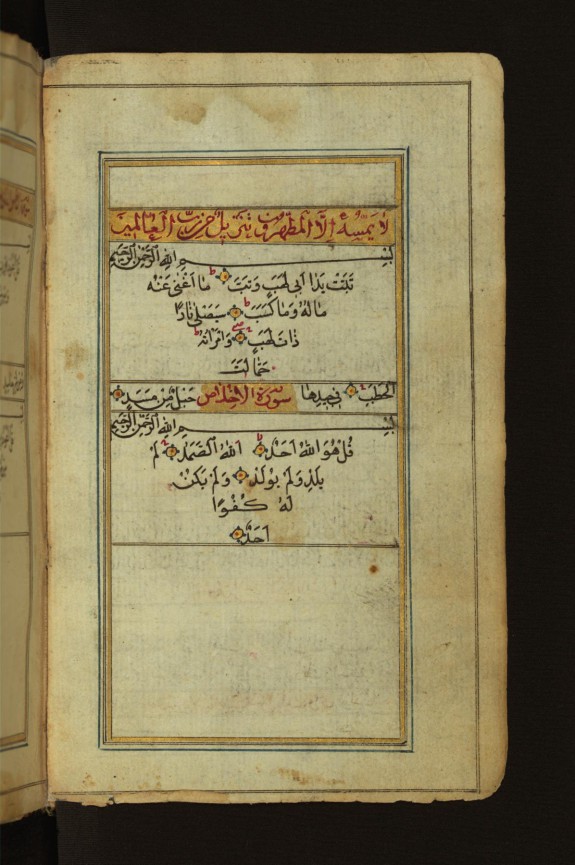 لا يمسه الا المطهرون تنزيل من رب العالمين
بسم الله الرحمن الرحيم
تَبَّتْ يَدَا أَبِى لَهَبٍ وَتَبَّ مَا أَغْنَى عَنْهُ
مَالُهُ وَمَا كَسَبَ سَيَصْلَى نَارًا
ذَاتَ لَهَبٍ وَامْرَأَتُهُ
حَمَّالَتَ
الْحَطَبِ فِى جِيدِهَا سورة الاخلاص حَبْلٌ مِنْ مَسَدٍ
بسم الله الرحمن الرحيم
قُلْ هُوَ اللهُ أَحَدٌ اللهُ الصَّمَدُ لَمْ
يَلِدْ وَلَمْ يُولَدْ وَلَمْ يَكُنْ
لَهُ كُفُوًا
أَحَدٌ